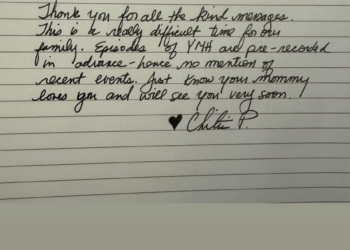 Thank you for all the kind messages.
This is a really difficult time for our
family. Episodes of YMH are pre-recorded
in advance - hence no mention of
recent events. Just know your mommy
loves you and will see you very soon.
♥ Christina P.